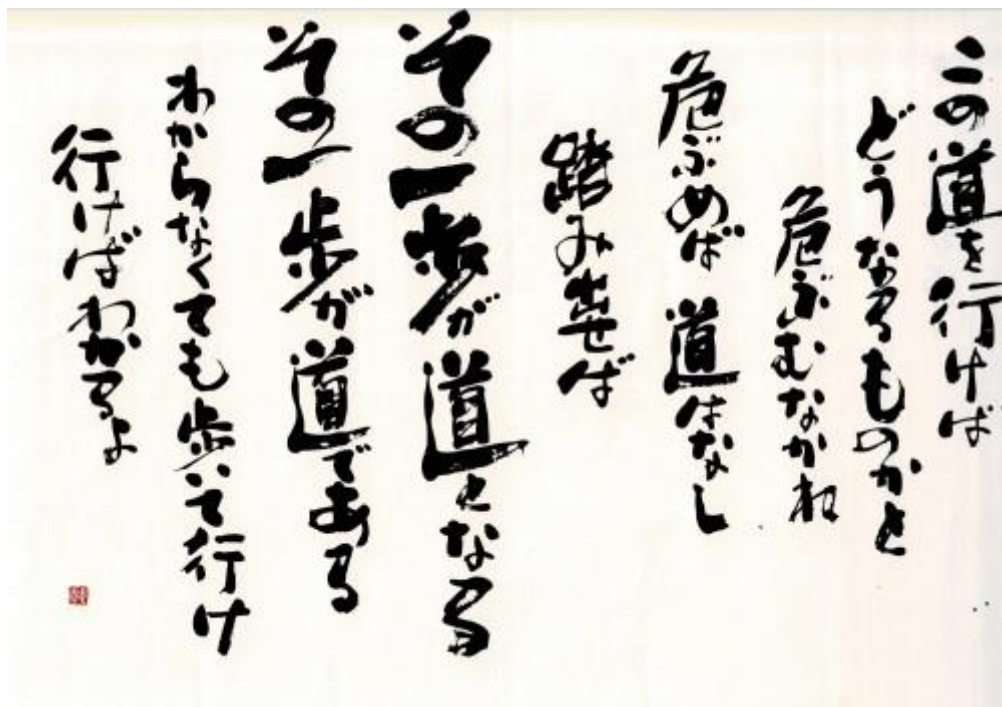 この道を行けば
どうなるものかと
危ぶむなかれ
危ぶめば 道はなし
踏み出せば
その一歩が道となる
その一歩が道である
わからなくても歩いて行け
行けばわかるよ